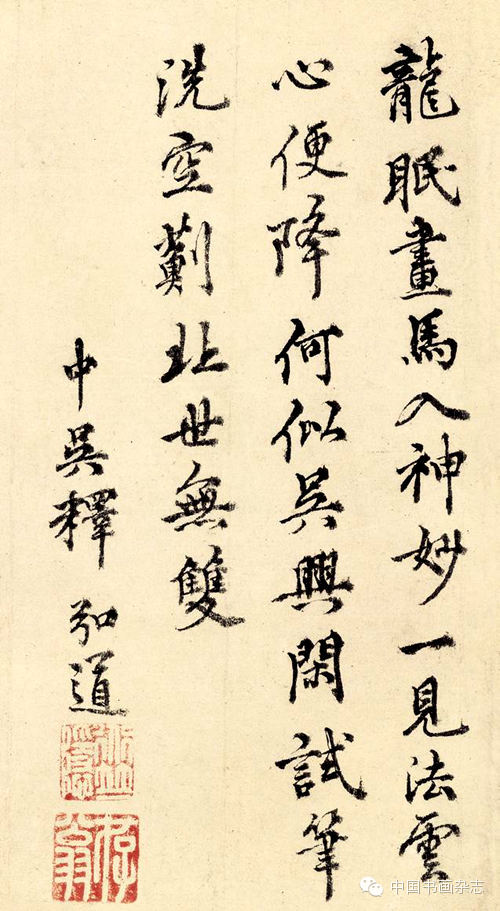 龍眠畫馬入神妙一見法雲
心便降何似吳興閑試筆
洗空薊北世無雙
中吳釋弘道
中国书画杂志